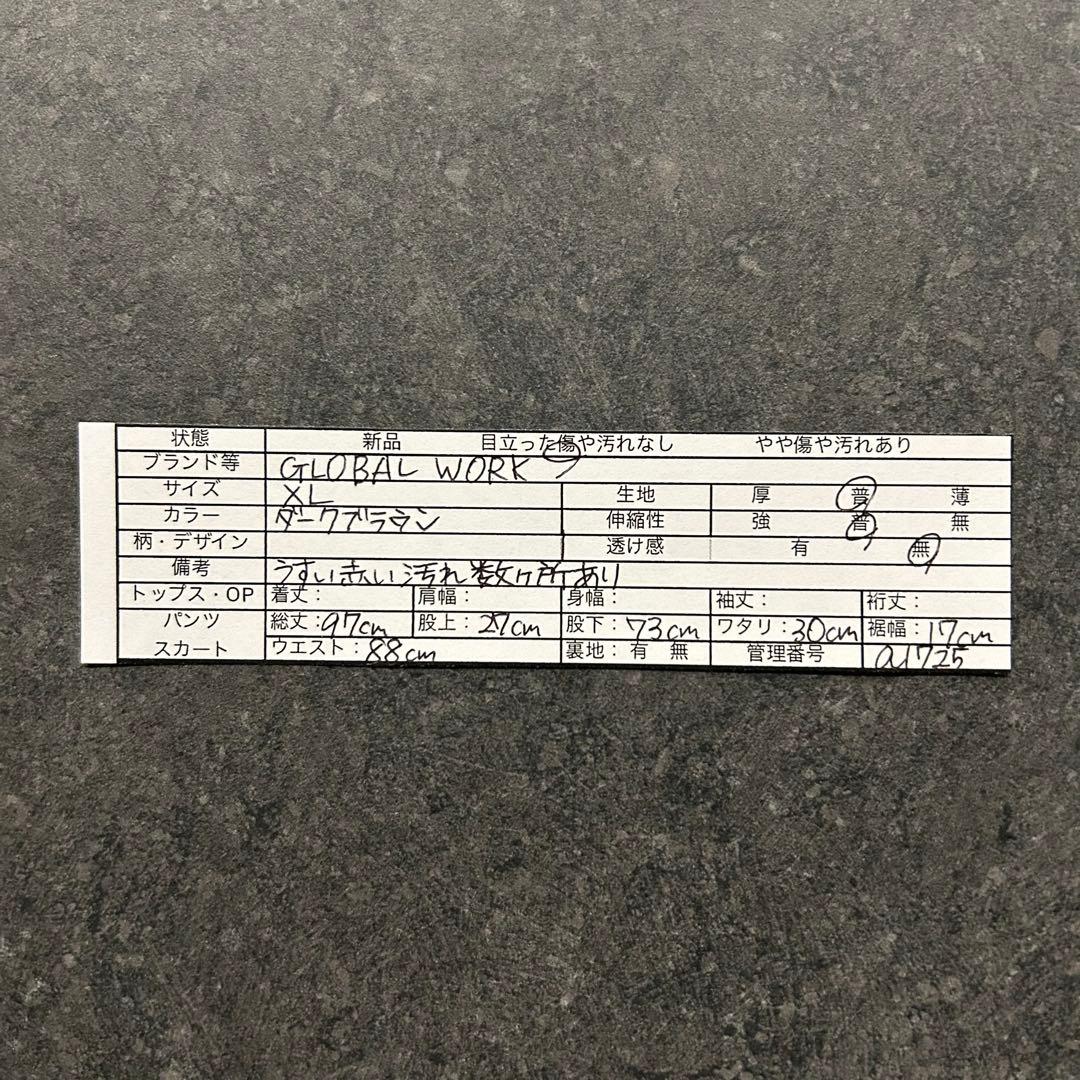 状態 新品 目立った傷や汚れなし やや傷や汚れあり
ブランド等 GLOBAL WORK
サイズ XL 生地 厚 普 薄
カラー ダークブラウン 伸縮性 強 普 無
柄・デザイン 透け感 有 無
備考 うすい赤い汚れ数ヶ所あり
トップス・OP 着丈: 肩幅: 身幅: 袖丈: 裄丈:
パンツ 総丈:97cm 股上:27cm 股下:73cm ワタリ:30cm 裾幅:17cm
スカート ウエスト:88cm 裏地: 有 無 管理番号 a1725